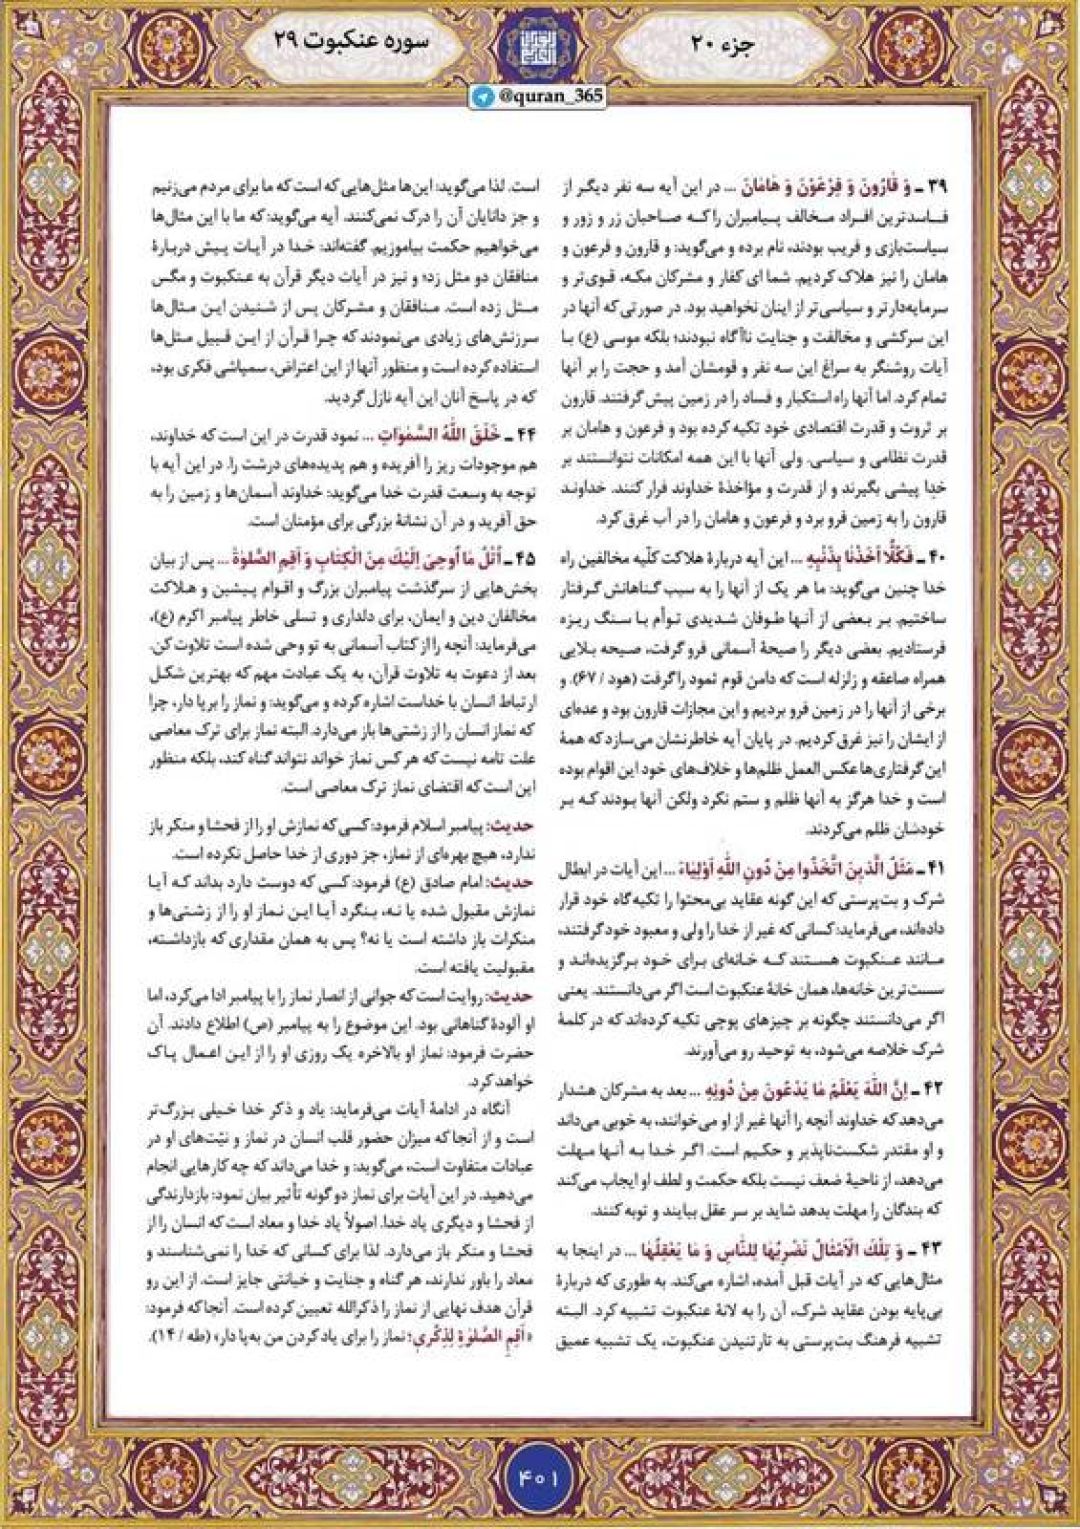 جزء ۲۰
سوره عنکبوت ۲۹
@quran_365
۳۹ ـ وَ قَارُونَ وَ فِرْعَوْنَ وَ هَامَانَ ... در این آیه سه نفر دیگر از
فاسدترین افراد مخالف پیامبران را که صاحبان زر و زور و
سیاست‌بازی و فریب بودند، نام برده و می‌گوید: و قارون و فرعون و
هامان را نیز هلاک کردیم. شما ای کفار و مشرکان مکه، قوی‌تر و
سرمایه‌دارتر و سیاسی‌تر از اینان نخواهید بود. در صورتی که آنها در
این سرکشی و مخالفت و جنایت ناآگاه نبودند؛ بلکه موسی (ع) با
آیات روشنگر به سراغ این سه نفر و قومشان آمد و حجت را بر آنها
تمام کرد. اما آنها راه استکبار و فساد را در زمین پیش گرفتند. قارون
بر ثروت و قدرت اقتصادی خود تکیه کرده بود و فرعون و هامان بر
قدرت نظامی و سیاسی. ولی آنها با این همه امکانات نتوانستند بر
خدا پیشی بگیرند و از قدرت و مؤاخذهٔ خداوند فرار کنند. خداوند
قارون را به زمین فرو برد و فرعون و هامان را در آب غرق کرد.
۴۰ ـ فَكُلًّا اَخَذْنَا بِذَنْبِهِ ... این آیه دربارهٔ هلاکت کلّیه مخالفین راه
خدا چنین می‌گوید: ما هر یک از آنها را به سبب گناهانش گرفتار
ساختیم. بر بعضی از آنها طوفان شدیدی توأم با سنگ ریزه
فرستادیم. بعضی دیگر را صیحهٔ آسمانی فرو گرفت، صیحه بلایی
همراه صاعقه و زلزله است که دامن قوم ثمود را گرفت (هود / ۶۷). و
برخی از آنها را در زمین فرو بردیم و این مجازات قارون بود و عده‌ای
از ایشان را نیز غرق کردیم. در پایان آیه خاطرنشان می‌سازد که همهٔ
این گرفتاری‌ها عکس العمل ظلم‌ها و خلاف‌های خود این اقوام بوده
است و خدا هرگز به آنها ظلم و ستم نکرد ولکن آنها بودند که بر
خودشان ظلم می‌کردند.
۴۱ ـ مَثَلُ الَّذِينَ اتَّخَذُوا مِنْ دُونِ اللهِ اَوْلِيَاءَ ... این آیات در ابطال
شرک و بت‌پرستی که این گونه عقاید بی‌محتوا را تکیه‌گاه خود قرار
داده‌اند، می‌فرماید: کسانی که غیر از خدا را ولی و معبود خود گرفتند،
مانند عنکبوت هستند که خانه‌ای برای خود برگزیده‌اند و
سست‌ترین خانه‌ها، همان خانهٔ عنکبوت است اگر می‌دانستند. یعنی
اگر می‌دانستند چگونه بر چیزهای پوچی تکیه کرده‌اند که در کلمهٔ
شرک خلاصه می‌شود، به توحید رو می‌آورند.
۴۲ ـ اِنَّ اللهَ يَعْلَمُ مَا يَدْعُونَ مِنْ دُونِهِ ... بعد به مشرکان هشدار
می‌دهد که خداوند آنچه را آنها غیر از او می‌خوانند، به خوبی می‌داند
و او مقتدر شکست‌ناپذیر و حکیم است. اگر خدا به آنها مهلت
می‌دهد، از ناحیهٔ ضعف نیست بلکه حکمت و لطف او ایجاب می‌کند
که بندگان را مهلت بدهد شاید بر سر عقل بیایند و توبه کنند.
۴۳ ـ وَ تِلْكَ الْاَمْثَالُ نَضْرِبُهَا لِلنَّاسِ وَ مَا يَعْقِلُهَا ... در اینجا به
مثال‌هایی که در آیات قبل آمده، اشاره می‌کند. به طوری که دربارهٔ
بی‌پایه بودن عقاید شرک، آن را به لانهٔ عنکبوت تشبیه کرد. البته
تشبیه فرهنگ بت‌پرستی به تار تنیدن عنکبوت، یک تشبیه عمیق
است. لذا می‌گوید: این‌ها مثل‌هایی که است که ما برای مردم می‌زنیم
و جز دانایان آن را درک نمی‌کنند. آیه می‌گوید: که ما با این مثال‌ها
می‌خواهیم حکمت بیاموزیم. گفته‌اند: خدا در آیات پیش دربارهٔ
منافقان دو مثل زد؛ و نیز در آیات دیگر قرآن به عنکبوت و مگس
مثل زده است. منافقان و مشرکان پس از شنیدن این مثال‌ها
سرزنش‌های زیادی می‌نمودند که چرا قرآن از این قبیل مثل‌ها
استفاده کرده است و منظور آنها از این اعتراض، سمپاشی فکری بود،
که در پاسخ آنان این آیه نازل گردید.
۴۴ ـ خَلَقَ اللهُ السَّمٰوَاتِ ... نمود قدرت در این است که خداوند،
هم موجودات ریز را آفریده و هم پدیده‌های درشت را. در این آیه با
توجه به وسعت قدرت خدا می‌گوید: خداوند آسمان‌ها و زمین را به
حق آفرید و در آن نشانهٔ بزرگی برای مؤمنان است.
۴۵ ـ اُتْلُ مَا اُوحِیَ اِلَيْكَ مِنَ الْكِتَابِ وَ اَقِمِ الصَّلوٰةَ ... پس از بیان
بخش‌هایی از سرگذشت پیامبران بزرگ و اقوام پیشین و هلاکت
مخالفان دین و ایمان، برای دلداری و تسلی خاطر پیامبر اکرم (ع)،
می‌فرماید: آنچه را از کتاب آسمانی به تو وحی شده است تلاوت کن.
بعد از دعوت به تلاوت قرآن، به یک عبادت مهم که بهترین شکل
ارتباط انسان با خداست اشاره کرده و می‌گوید: و نماز را برپا دار، چرا
که نماز انسان را از زشتی‌ها باز می‌دارد. البته نماز برای ترک معاصی
علت تامه نیست که هر کس نماز خواند نتواند گناه کند، بلکه منظور
این است که اقتضای نماز ترک معاصی است.
حدیث: پیامبر اسلام فرمود: کسی که نمازش او را از فحشا و منکر باز
ندارد، هیچ بهره‌ای از نماز، جز دوری از خدا حاصل نکرده است.
حدیث: امام صادق (ع) فرمود: کسی که دوست دارد بداند که آیا
نمازش مقبول شده یا نه، بنگرد آیا این نماز او را از زشتی‌ها و
منکرات باز داشته است یا نه؟ پس به همان مقداری که بازداشته،
مقبولیت یافته است.
حدیث: روایت است که جوانی از انصار نماز را با پیامبر ادا می‌کرد، اما
او آلودهٔ گناهانی بود. این موضوع را به پیامبر (ص) اطلاع دادند. آن
حضرت فرمود: نماز او بالاخره یک روزی او را از این اعمال پاک
خواهد کرد.
آنگاه در ادامهٔ آیات می‌فرماید: یاد و ذکر خدا خیلی بزرگ‌تر
است و از آنجا که میزان حضور قلب انسان در نماز و نیّت‌های او در
عبادات متفاوت است، می‌گوید: و خدا می‌داند که چه کارهایی انجام
می‌دهید. در این آیات برای نماز دو گونه تأثیر بیان نمود: بازدارندگی
از فحشا و دیگری یاد خدا. اصولاً یاد خدا و معاد است که انسان را از
فحشا و منکر باز می‌دارد. لذا برای کسانی که خدا را نمی‌شناسند و
معاد را باور ندارند، هر گناه و جنایت و خیانتی جایز است. از این رو
قرآن هدف نهایی از نماز را ذکرالله تعیین کرده است. آنجا که فرمود:
«اَقِمِ الصَّلوٰةَ لِذِكْرِی؛ نماز را برای یاد کردن من به‌پا دار» (طه / ۱۴).
۴۰۱